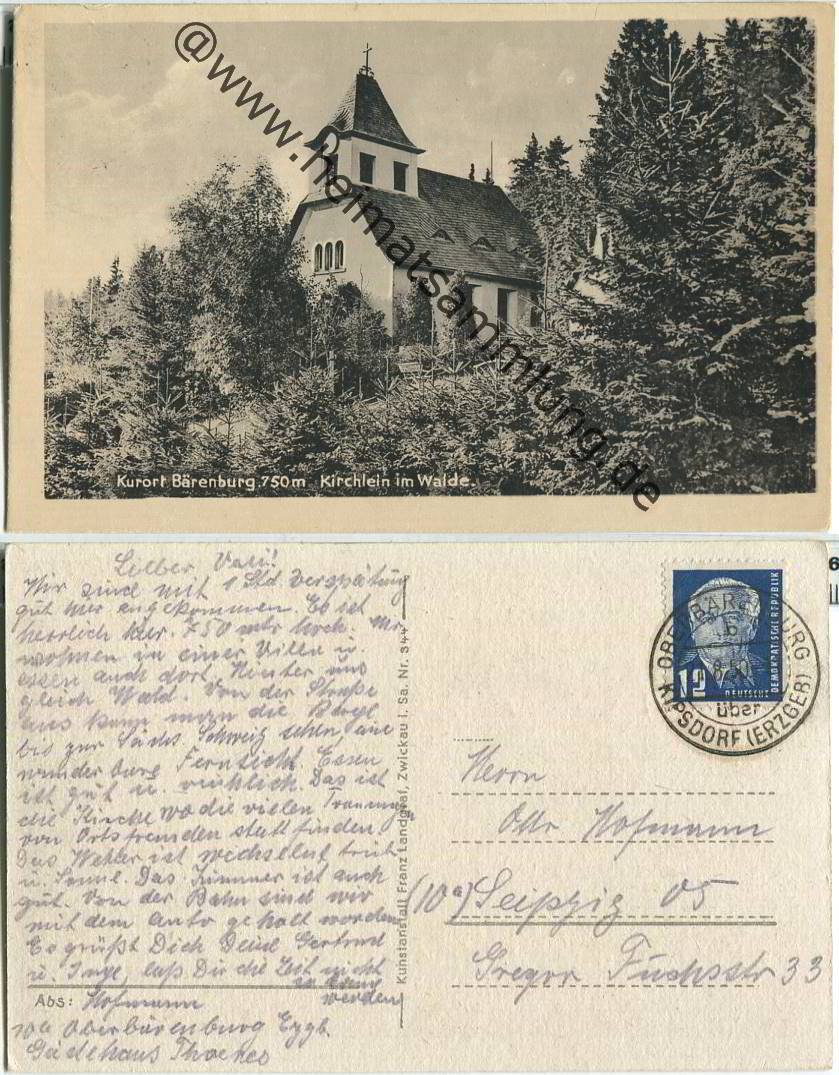 @www.heimatsammlung.de
Kurort Bärenburg 750m Kirchlein im Walde.
Lieber Vati!
Wir sind mit 1 Std Verspätung
gut hier angekommen. Es ist
herrlich hier. 750 mtr hoch. Wir
wohnen in einer Villa u.
essen auch dort. Hinter uns
gleich Wald. Von der Straße
aus kann man die Berge
bis zur Sächs. Schweiz sehen eine
wunderbare Fernsicht. Essen
ist gut u. reichlich. Das ist
die Kirche wo die vielen Trauungen
von Ortsfremden stattfinden.
Das Wetter ist wechselhaft trüb
u. Sonne. Das Zimmer ist auch
gut. Von der Bahn sind wir
mit dem Auto geholt worden
Es grüßt Dich Deine Gertrud
u. Inge, laß Dir die Zeit nicht
zu lang
werden
Abs: Hofmann
10a Oberbärenburg Erzgb.
Gästehaus
Kunstanstalt Franz Landgraf, Zwickau i. Sa. Nr. 344
DEUTSCHE DEMOKRATISCHE REPUBLIK
12
DEUTSCHE
OBERBÄRENBURG
8-50
über
KIPSDORF (ERZGEB)
Herrn
Otto Hofmann
(10a) Leipzig O5
Gregor Fuchsstr 33
6